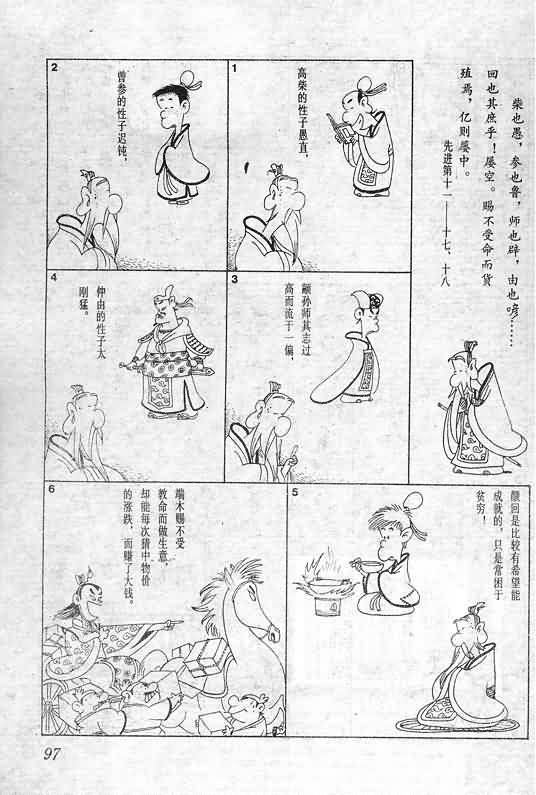 柴也愚，参也鲁，师也辟，由也喭……
回也其庶乎！屡空。赐不受命而货
殖焉，亿则屡中。
先进第十一——十七、十八
1
高柴的性子愚直，
2
曾参的性子迟钝，
3
颛孙师其志过
高而流于一偏，
4
仲由的性子太
刚猛。
5
颜回是比较有希望能
成就的，只是常困于
贫穷！
6
端木赐不受
教命而做生意，
却能每次猜中物价
的涨跌，而赚了大钱。
97